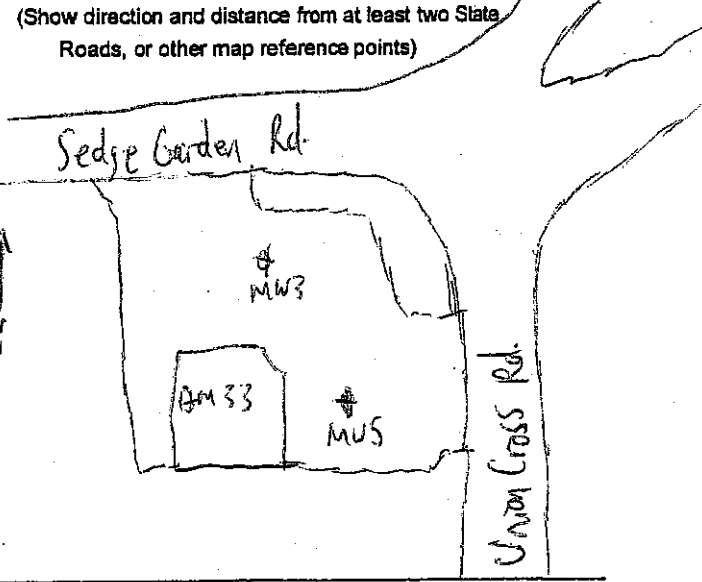 (Show direction and distance from at least two State
Roads, or other map reference points)
Sedge Garden Rd.
MW3
33
MW5
Union Cross Rd.